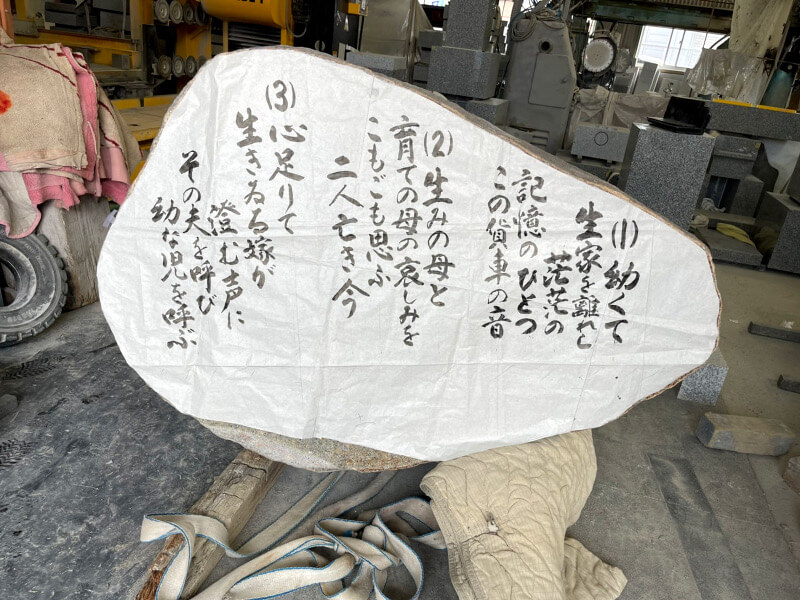 (1) 幼くて
生家を離れし
茫茫の
記憶のひとつ
この貨車の音
(2) 生みの母と
育ての母の哀しみを
こもごも思ふ
二人亡き今
(3) 心足りて
生きゐる嫁が
澄む声に
その夫を呼び
幼な児を呼ぶ